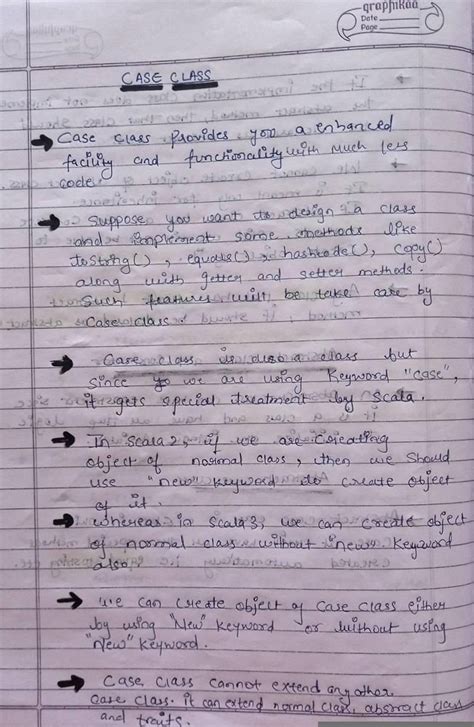 graphikaa
Date
Page
CASE CLASS
→ Case class Provides you a enhanced
facility and functionality with much less
code.
→ Suppose you want to design a class
and implement some methods like
toString(), equals(), hashcode(), copy()
along with getter and setter methods.
Such features will be take care by
Case class.
→ Case class is also a class but
since we are using Keyword "case",
it gets special treatment by Scala.
→ In Scala 2, if we are creating
object of normal class, then we should
use "new" keyword to create object
of it.
→ whereas in Scala 3, we can create object
of normal class without "new" Keyword
also.
→ we can create object of case class either
by using "New" keyword or without using
"New" keyword.
→ Case class cannot extend any other
case class. it can extend normal class, abstract class
and traits.